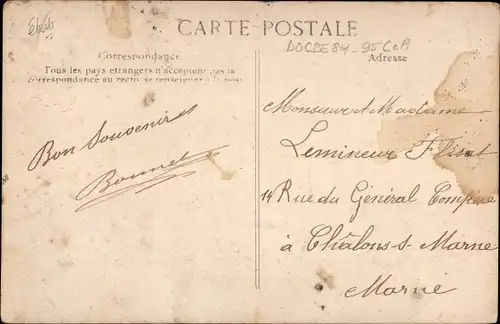 CARTE POSTALE
Correspondance
Tous les pays étrangers n'acceptent pas la
correspondance au recto, se renseigner à la poste
Adresse
Bon Souvenir
Bonnet
Monsieur et Madame
Lemineur
14 Rue du Général Compère
à Châlons-s-Marne
Marne